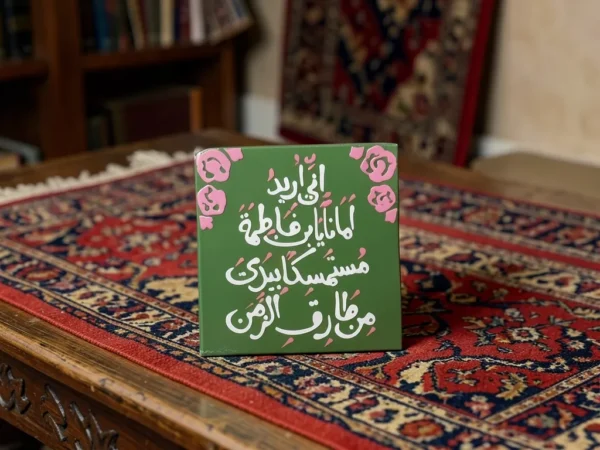 انّي أريدُ
امَانًا يَابن فَاطِمَة
مُستمسكًا بيدي
مِن طَارق الزّمن